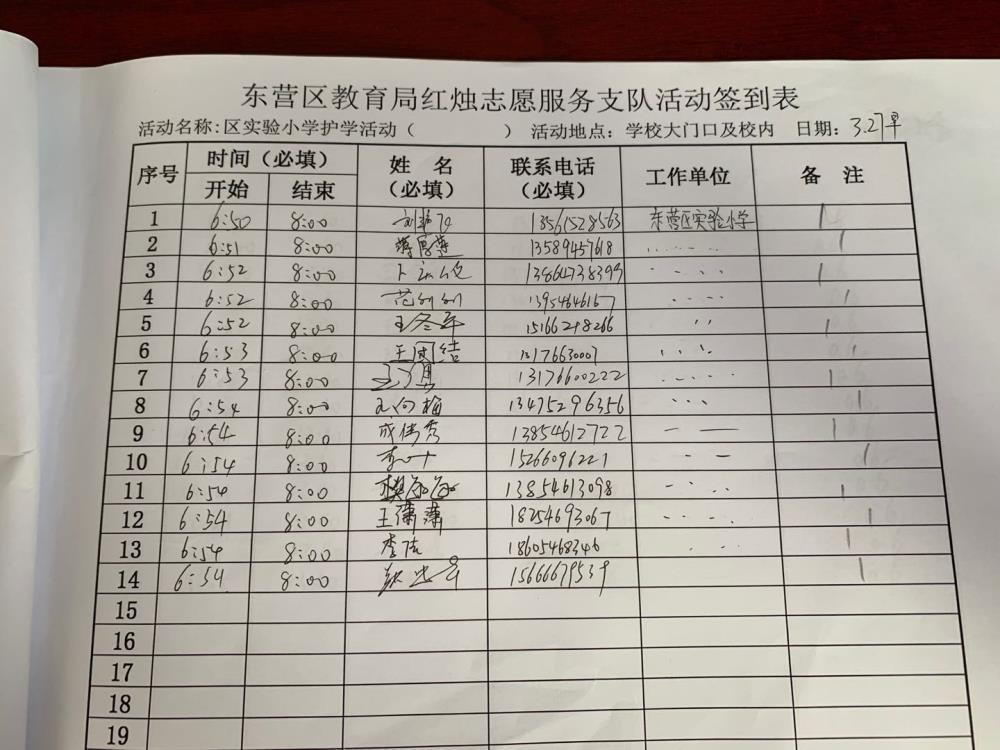 东营区教育局红烛志愿服务支队活动签到表
活动名称:区实验小学护学活动（ ） 活动地点：学校大门口及校内 日期：3.27早
序号 时间（必填） 姓 名（必填） 联系电话（必填） 工作单位 备 注
开始 结束
1 6:50 8:00 13561528563 东营区实验小学
2 6:51 8:00 13589457618
3 6:52 8:00 13864738399
4 6:52 8:00 13954646167
5 6:52 8:00 王冬年 15166298266 〃
6 6:53 8:00 王国结
7 6:53 8:00 13176600222
8 6:54 8:00 王向梅 13475296356
9 6:54 8:00 成倩秀 13854612722
10 6:54 8:00 15266096221
11 6:54 8:00 13854613098
12 6:54 8:00 王潇潇 18254693067
13 6:54 8:00 18605468346
14 6:54 8:00 15666679539
15
16
17
18
19